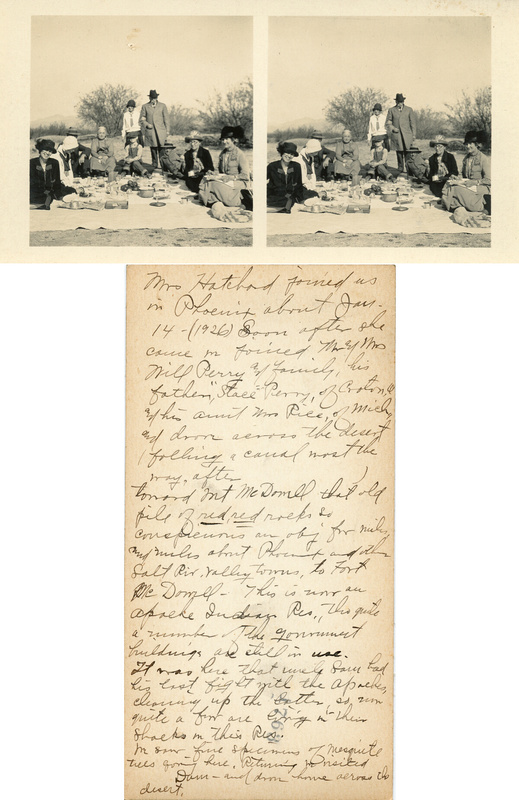 Mrs Hatchard joined us
in Phoenix about Jan.
14 - (1926) Soon after she
came we joined Mr & Mrs
Will Perry & family, his
father, "Stace" Perry, of Croton, O
& his aunt Mrs Rice, of Mich,
and drove across the desert
(folling a canal most the
way, after)
toward Mt McDowell that old
pile of red, red rocks so
conspicuous an obj for miles
and miles about Phoenix and other
Salt Riv. Valley towns, to Fort
McDowell - This is now an
Apache Indian Res., tho quite
a number of the government
buildings are still in use.
It was here that uncle Sam had
his last fight with the Apaches,
cleaning up the latter, so, now
quite a few are living in their
shacks on this Res.
We saw fine specimens of mesquite
trees going here. Returning we visited
Dam - and drove home across the
desert.